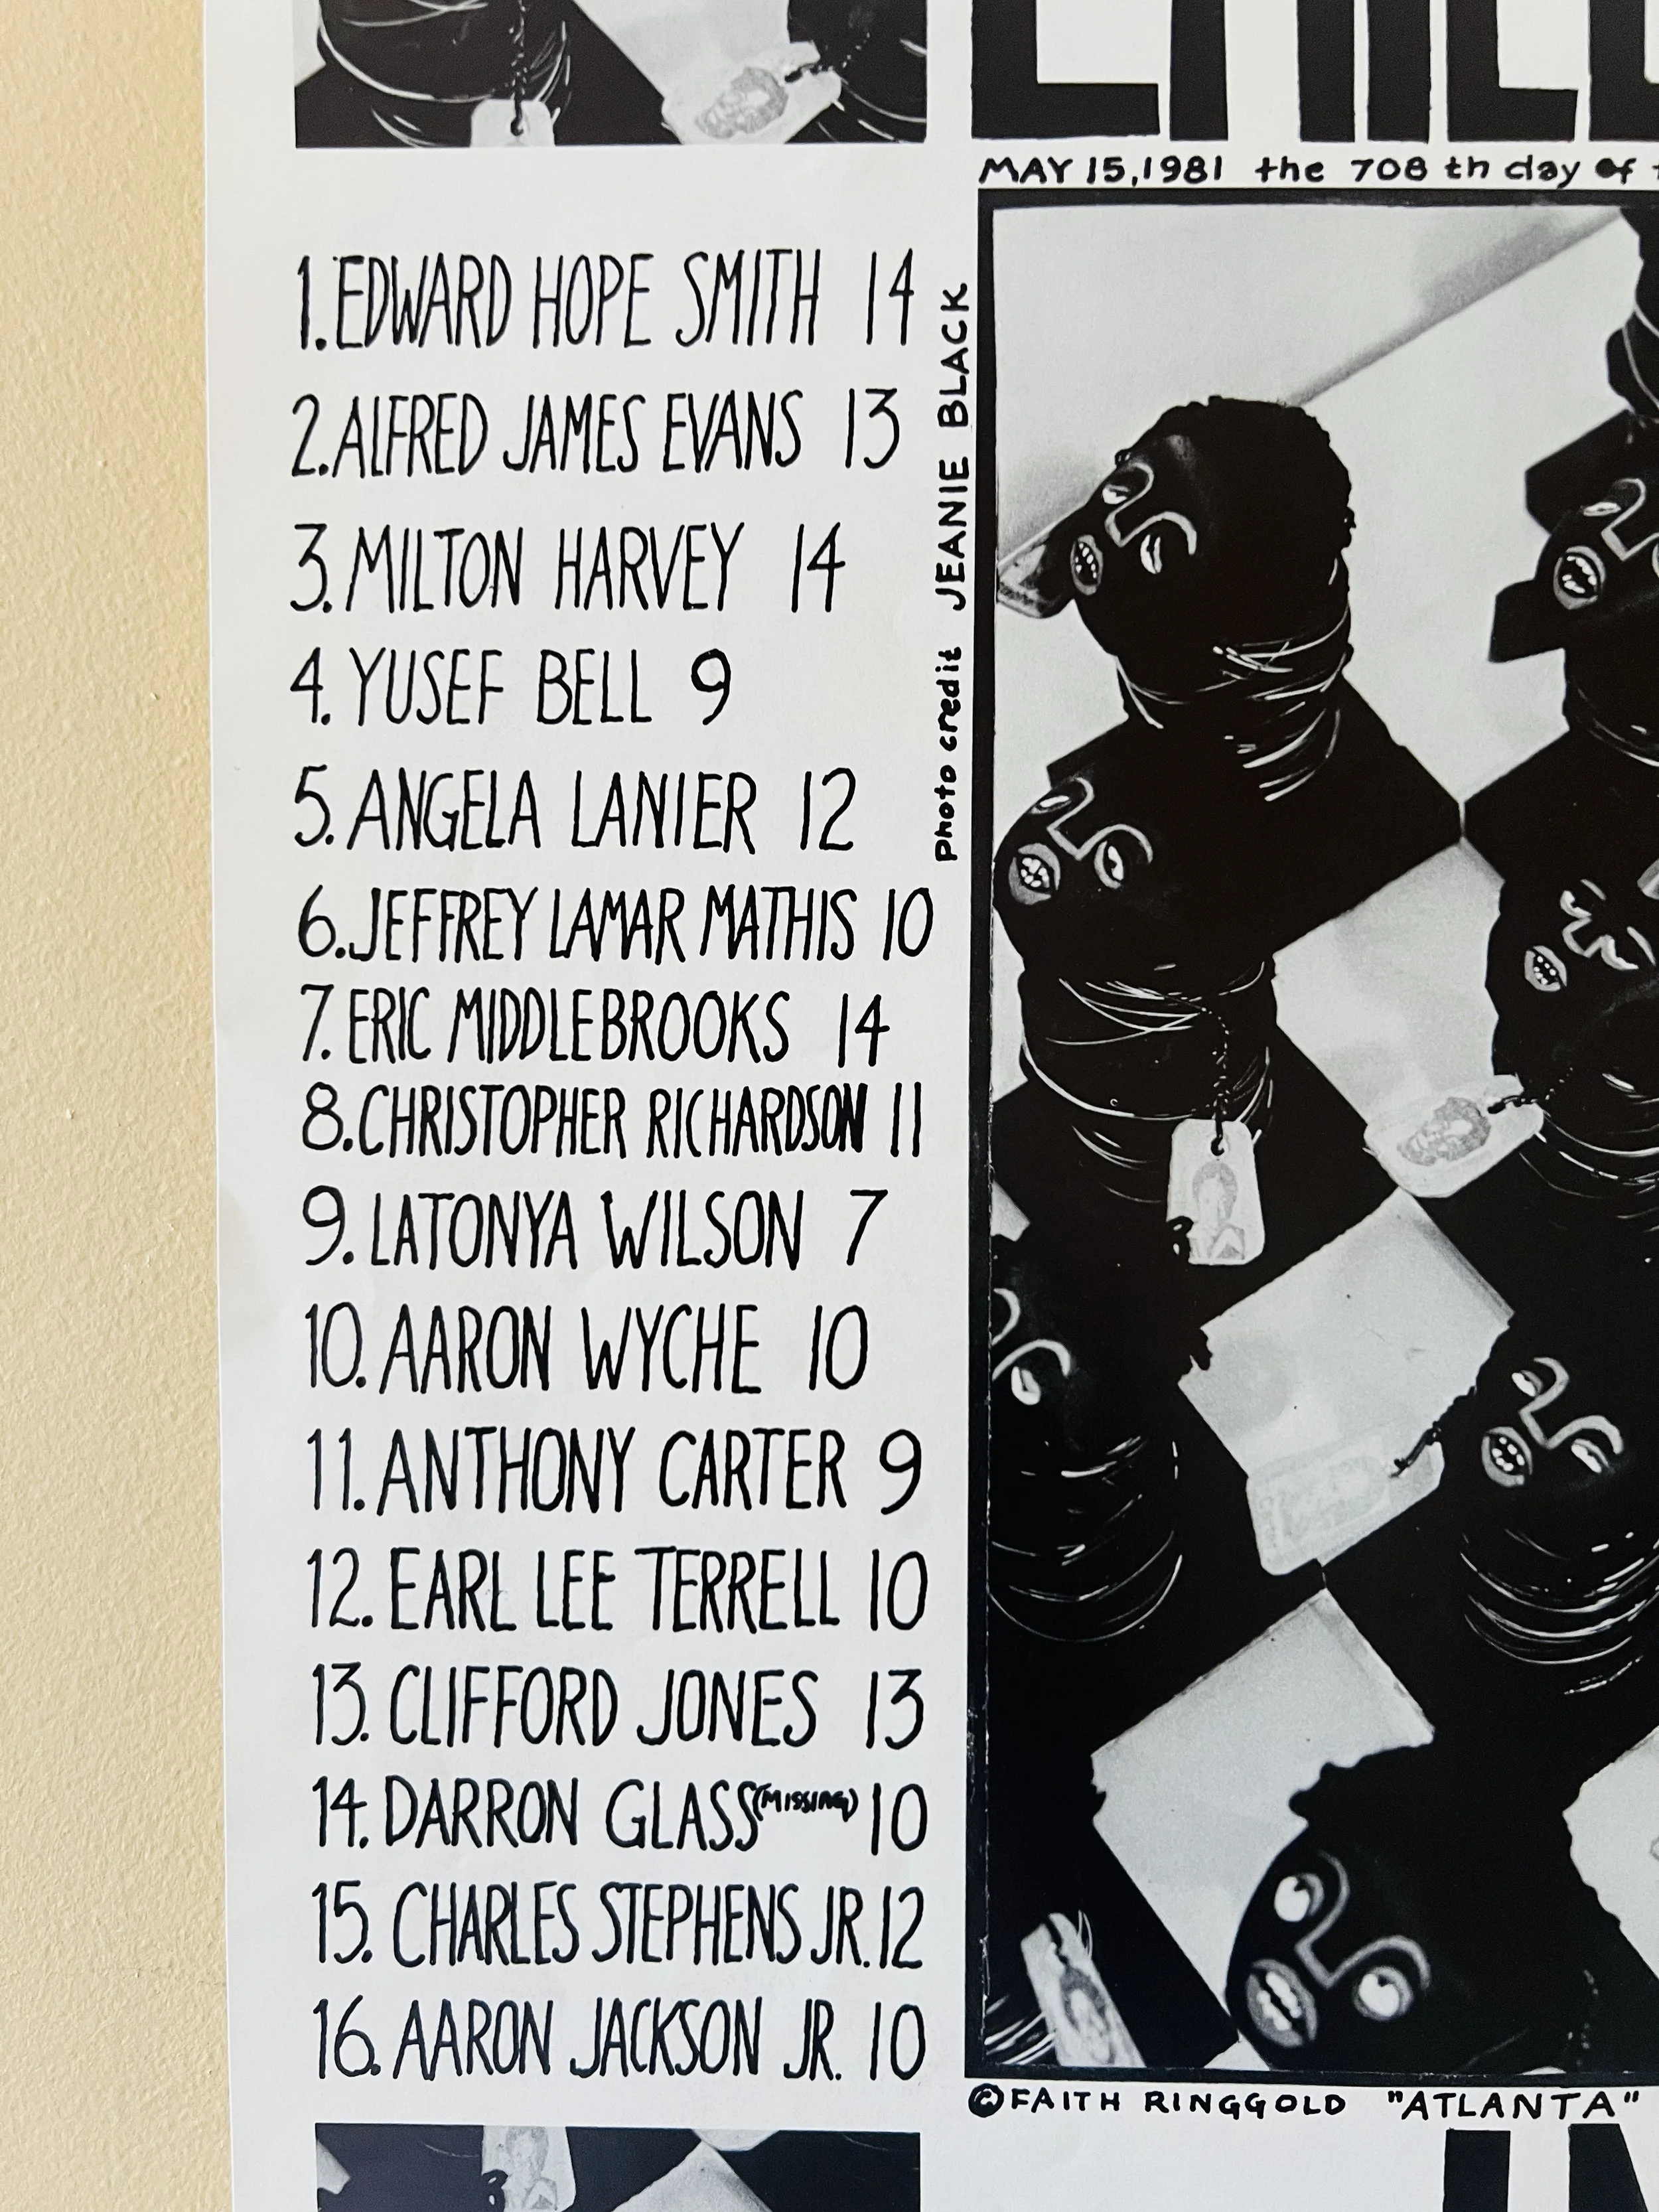 MAY 15, 1981 the 708 th day of
1. EDWARD HOPE SMITH 14
2. ALFRED JAMES EVANS 13
3. MILTON HARVEY 14
4. YUSEF BELL 9
5. ANGELA LANIER 12
6. JEFFREY LAMAR MATHIS 10
7. ERIC MIDDLEBROOKS 14
8. CHRISTOPHER RICHARDSON 11
9. LATONYA WILSON 7
10. AARON WYCHE 10
11. ANTHONY CARTER 9
12. EARL LEE TERRELL 10
13. CLIFFORD JONES 13
14. DARRON GLASS (MISSING) 10
15. CHARLES STEPHENS JR. 12
16. AARON JACKSON JR. 10
Photo credit JEANIE BLACK
©FAITH RINGGOLD "ATLANTA"